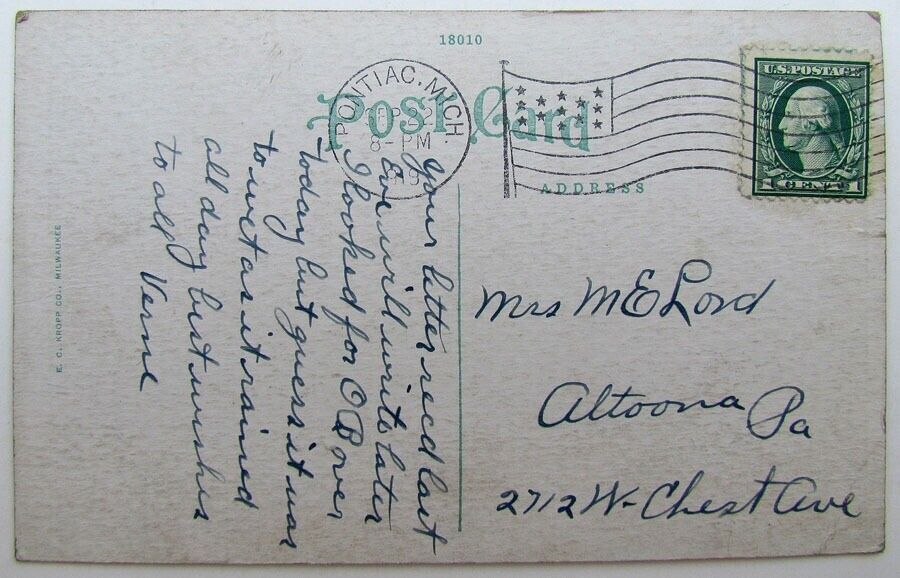 18010
PONTIAC, MICH.
SEP 22
8-PM
Post Card
ADDRESS
U.S. POSTAGE
1 CENT 1
Your letter recd last
Eve will write later
I looked for O B over
today but guess it was
to wet as it rained
all day best wishes
to all Verne
Mrs M E Lord
Altoona Pa
2712 W- Chest Ave
E. C. KROPP CO., MILWAUKEE